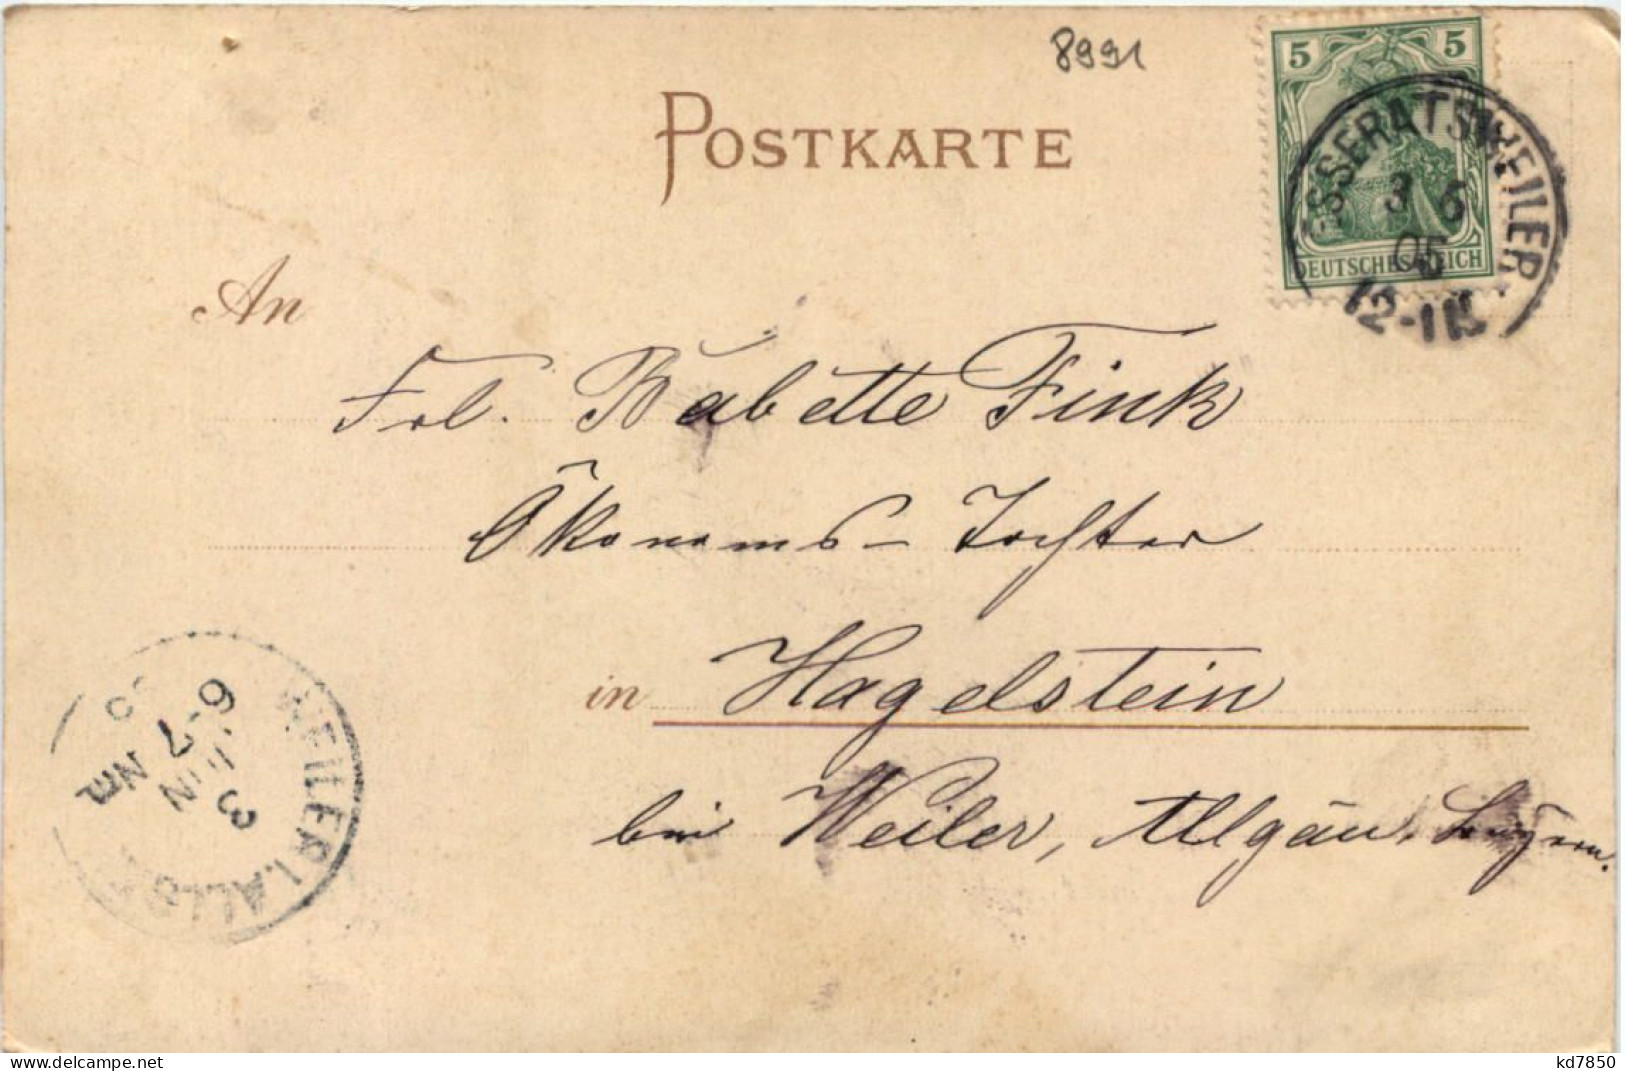 8991
POSTKARTE
5 5
DEUTSCHES REICH
ESSERATSWEILER
3 6
05
12-1N
An
Frl. Babette Fink
Ökonoms- Tochter
in Hagelstein
bei Weiler, Allgäu, Bayern.
WEILER I. ALLG
3 JUN
6
7
delcampe.net
kd7850